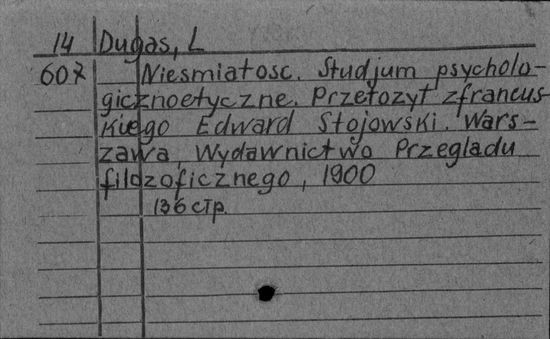 14 Dugas, L
607 Niesmiatosc. Studjum psycholo-
gicznoetyczne. Przetozyt zfrancus
kiego Edward Stojowski. Wars-
zawa, Wydawnictwo Przegladu
filozoficznego, 1900
136 стр.